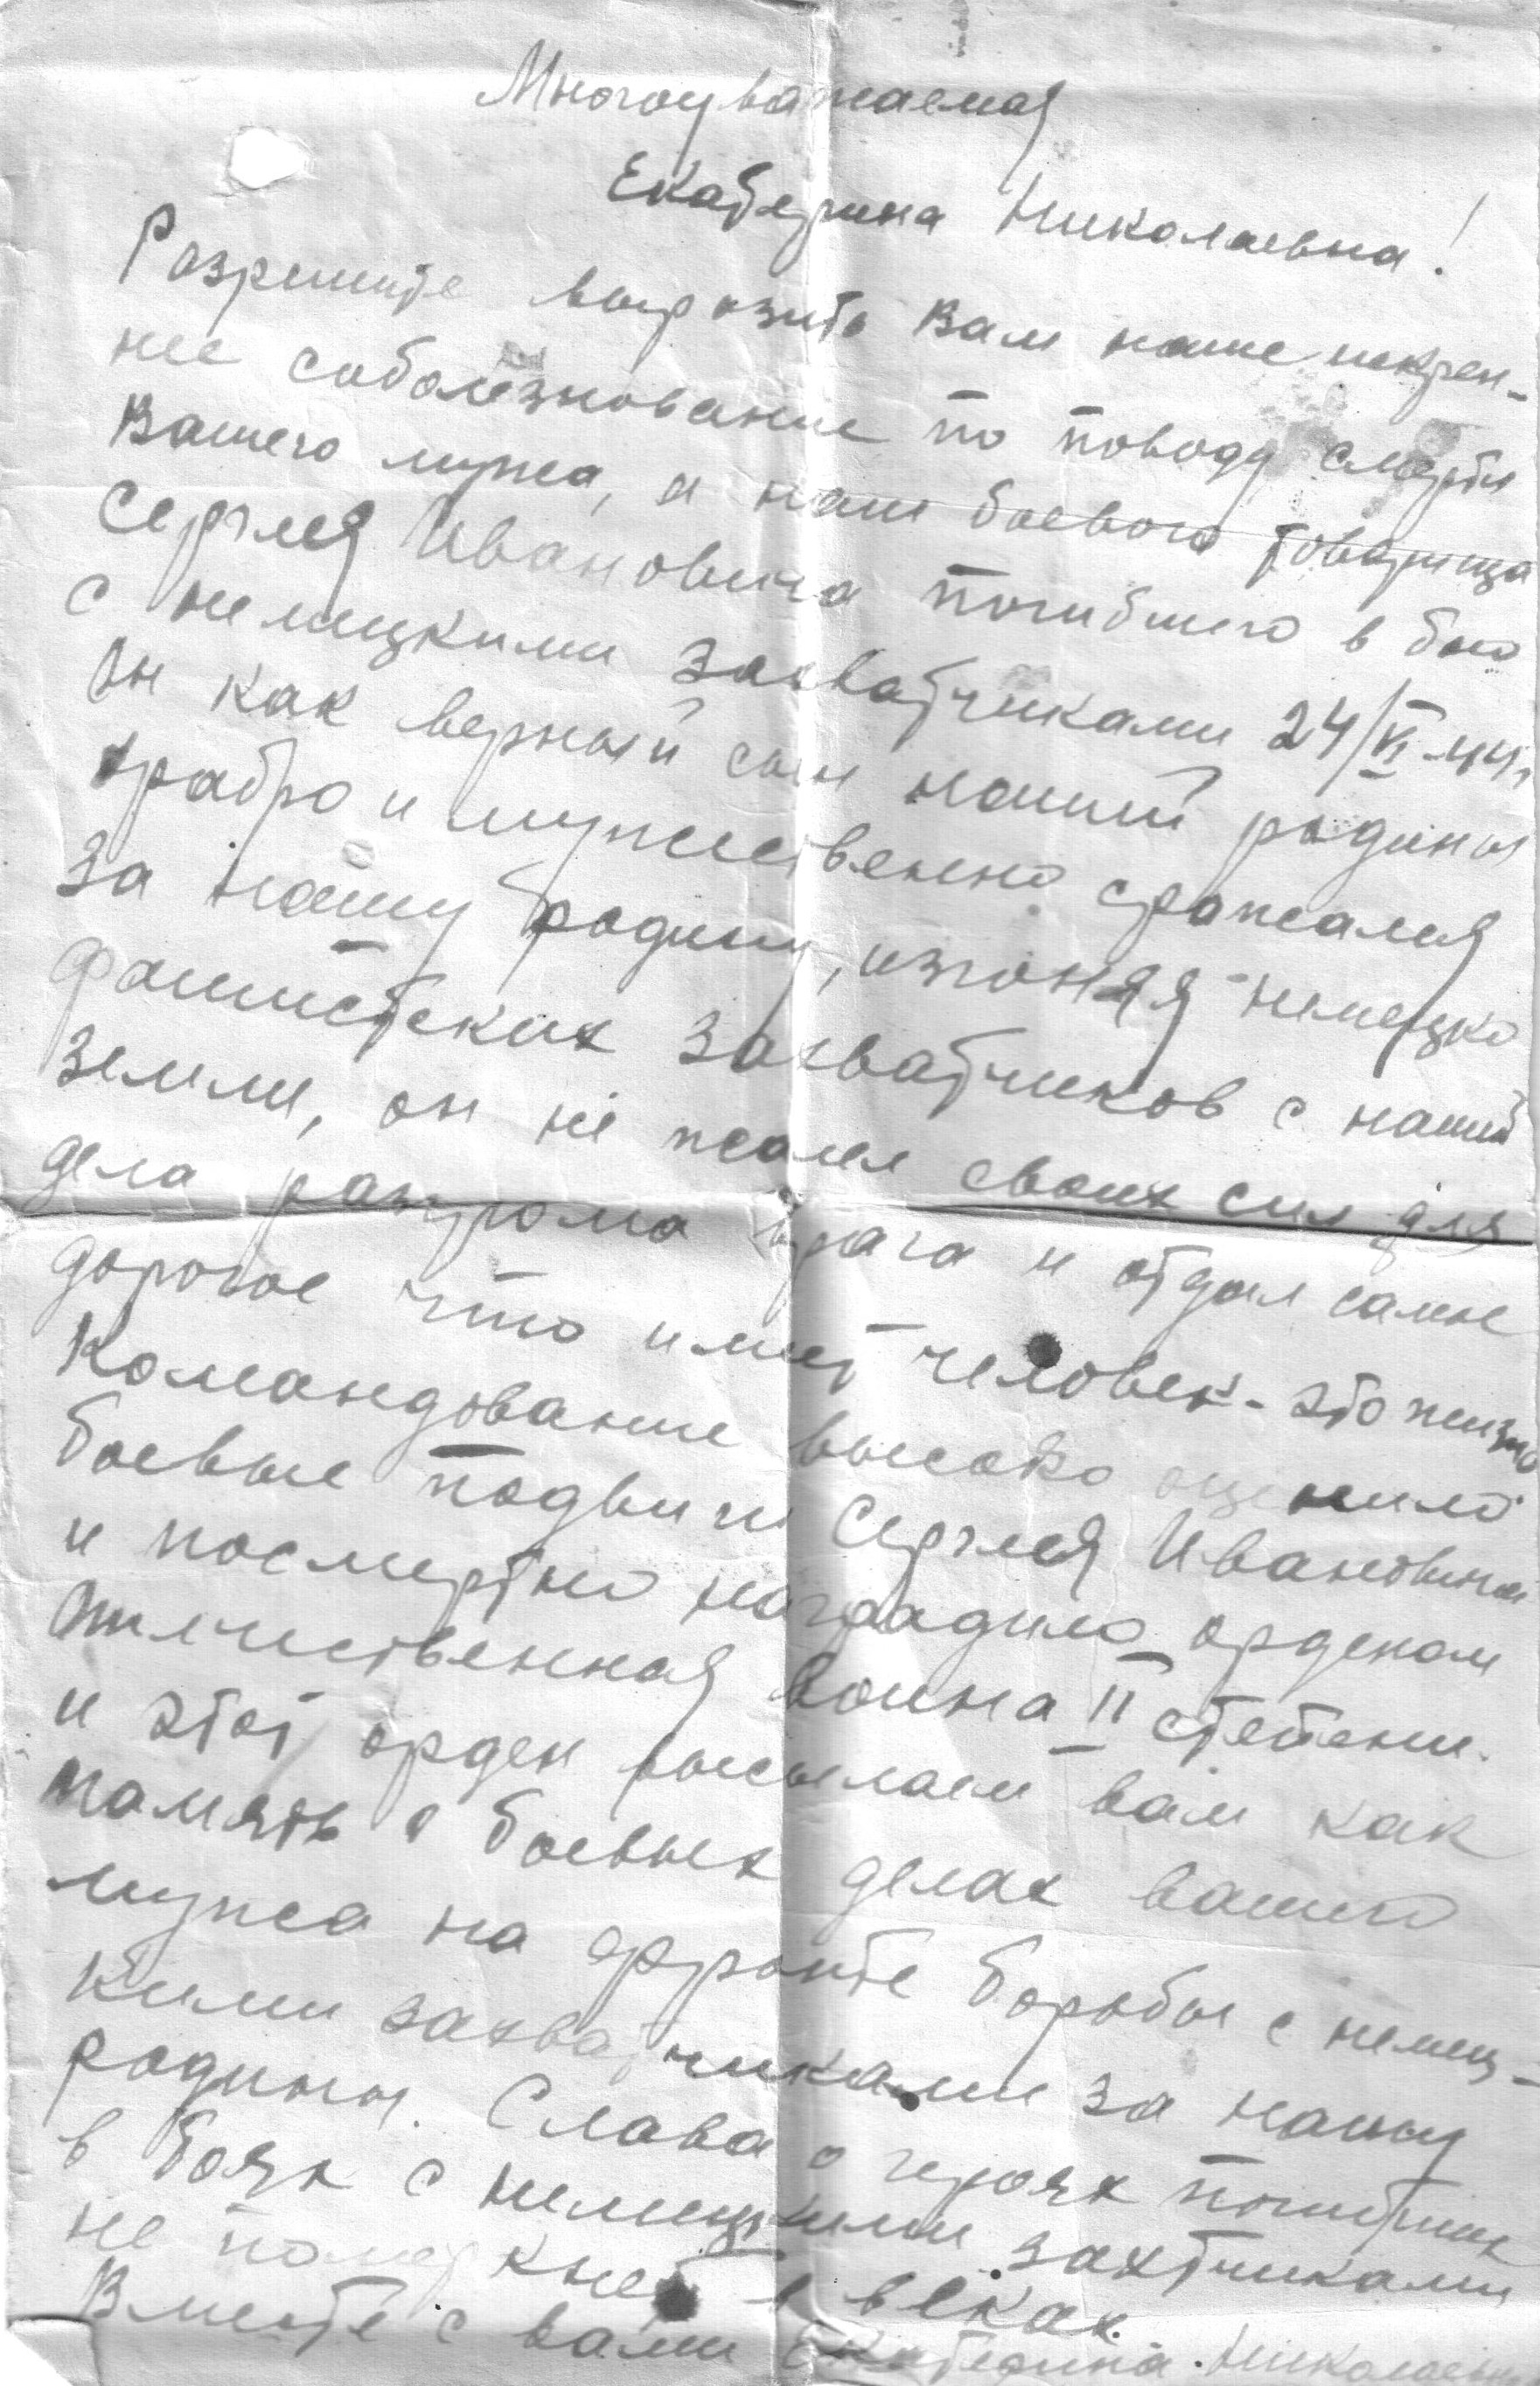 Многоуважаемая
Екатерина Николаевна!
Разрешите выразить Вам наше искрен-
нее соболезнование по поводу смерти
Вашего мужа, и наш боевого товарища
Сергея Ивановича погибшего в бою
с немецкими захватчиками 24/VI-44г,
Он как верный сын нашей родины
храбро и мужественно сражался
за нашу родину, изгоняя немецко
фашистских захватчиков с нашей
земли, он не жалел своих сил для
дела разгрома врага и отдал самое
дорогое что имеет человек - это жизнь
Командование высоко оценило
боевые подвиги Сергея Ивановича
и посмертно наградило орденом
Отечественная война II степени.
и этот орден высылаем вам как
память о боевых делах вашего
мужа на фронте борьбы с немец-
кими захватчиками за нашу
родину. Слава о героях погибших
в боях с немецкими захтчиками
не померкнет в веках.
Вместе с вами Екатерина Николаевна